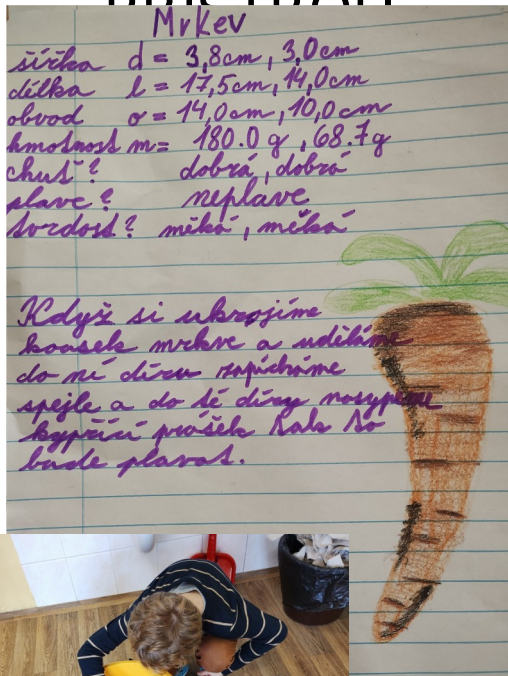 Mrkev
šířka d = 3,8cm, 3,0cm
délka l = 17,5cm, 14,0cm
obvod o = 14,0cm, 10,0cm
hmotnost m= 180.0 g, 68.7g
chuť? dobrá, dobrá
plave? neplave
tvrdost? měká, měká
Když si ukrojíme
kousek mrkve a uděláme
do ní díru zapícháme
spejle a do té díry nasypeme
kypřící prášek tak to
bude plavat.